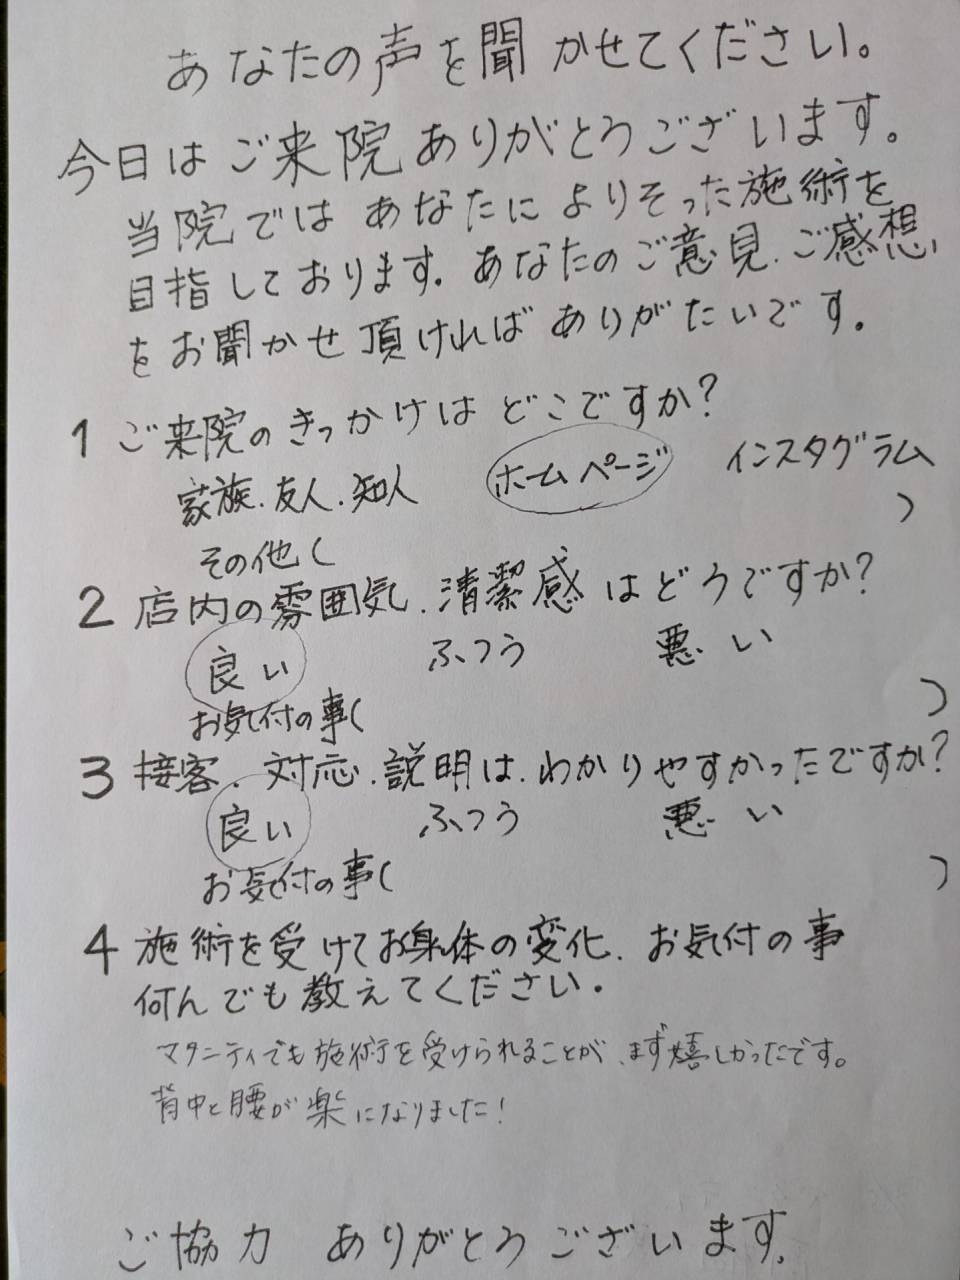 あなたの声を聞かせてください。
今日はご来院ありがとうございます。
当院ではあなたによりそった施術を
目指しております。あなたのご意見、ご感想、
をお聞かせ頂ければありがたいです。
1 ご来院のきっかけはどこですか?
家族・友人・知人 ホームページ インスタグラム
その他( )
2 店内の雰囲気、清潔感はどうですか?
良い ふつう 悪い
お気付の事( )
3 接客、対応、説明は、わかりやすかったですか?
良い ふつう 悪い
お気付の事( )
4 施術を受けてお身体の変化、お気付の事
何んでも教えてください。
マタニティでも施術を受けられることが、まず嬉しかったです。
背中と腰が楽になりました!
ご協力 ありがとうございます。